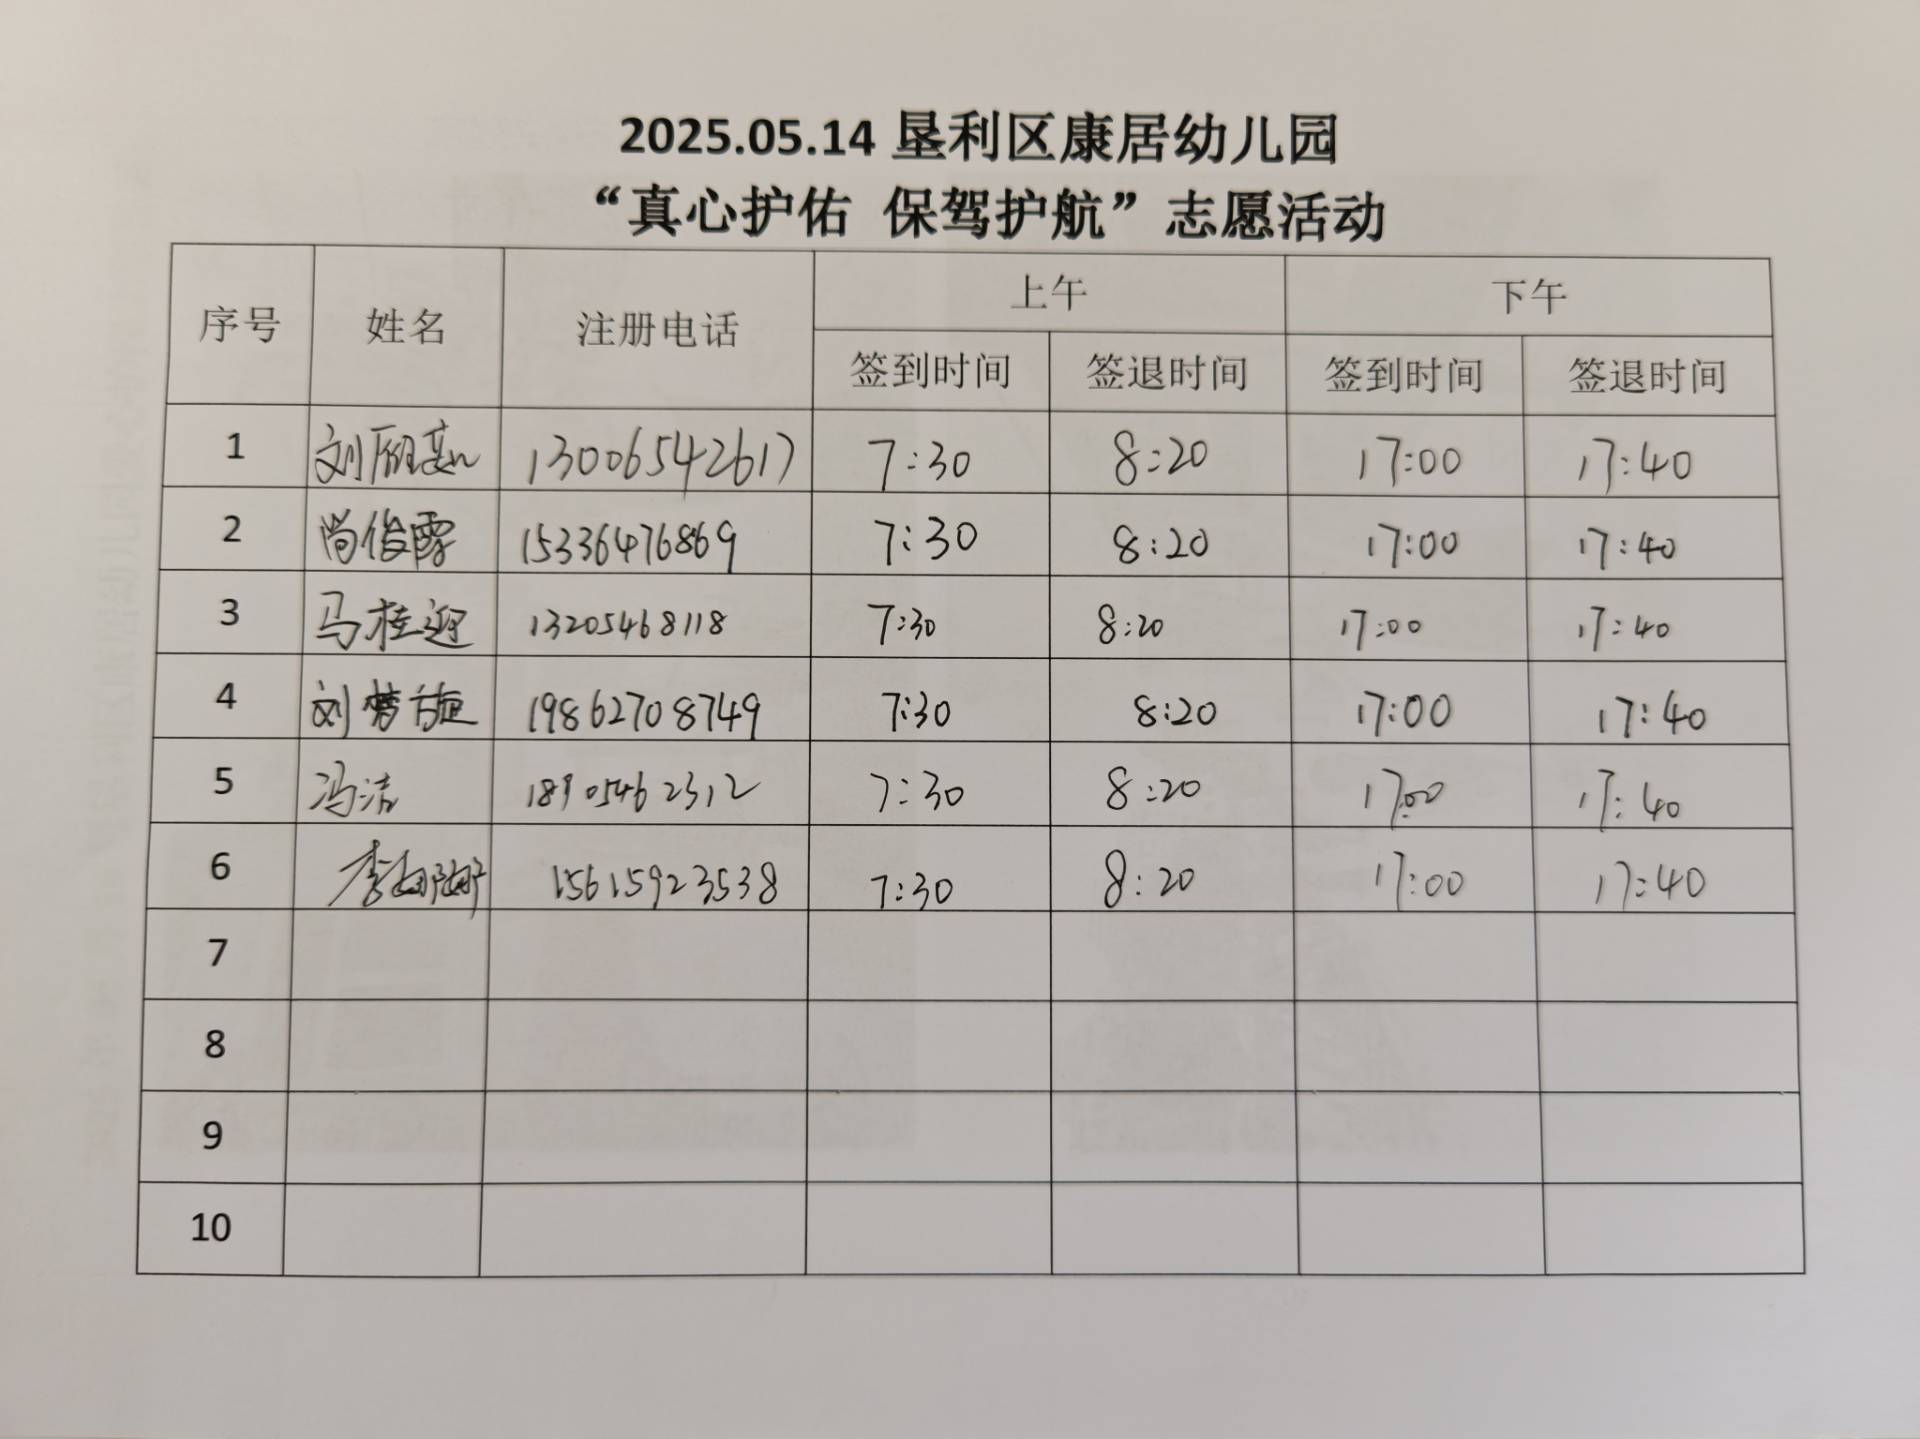 2025.05.14 垦利区康居幼儿园
“真心护佑 保驾护航”志愿活动
序号 姓名 注册电话 上午 下午
签到时间 签退时间 签到时间 签退时间
1 13006542617 7:30 8:20 17:00 17:40
2 尚俊霞 15336476869 7:30 8:20 17:00 17:40
3 马桂迎 13205468118 7:30 8:20 17:00 17:40
4 刘梦旋 19862708749 7:30 8:20 17:00 17:40
5 冯洁 18905462312 7:30 8:20 17:00 17:40
6 15615923538 7:30 8:20 17:00 17:40
7
8
9
10